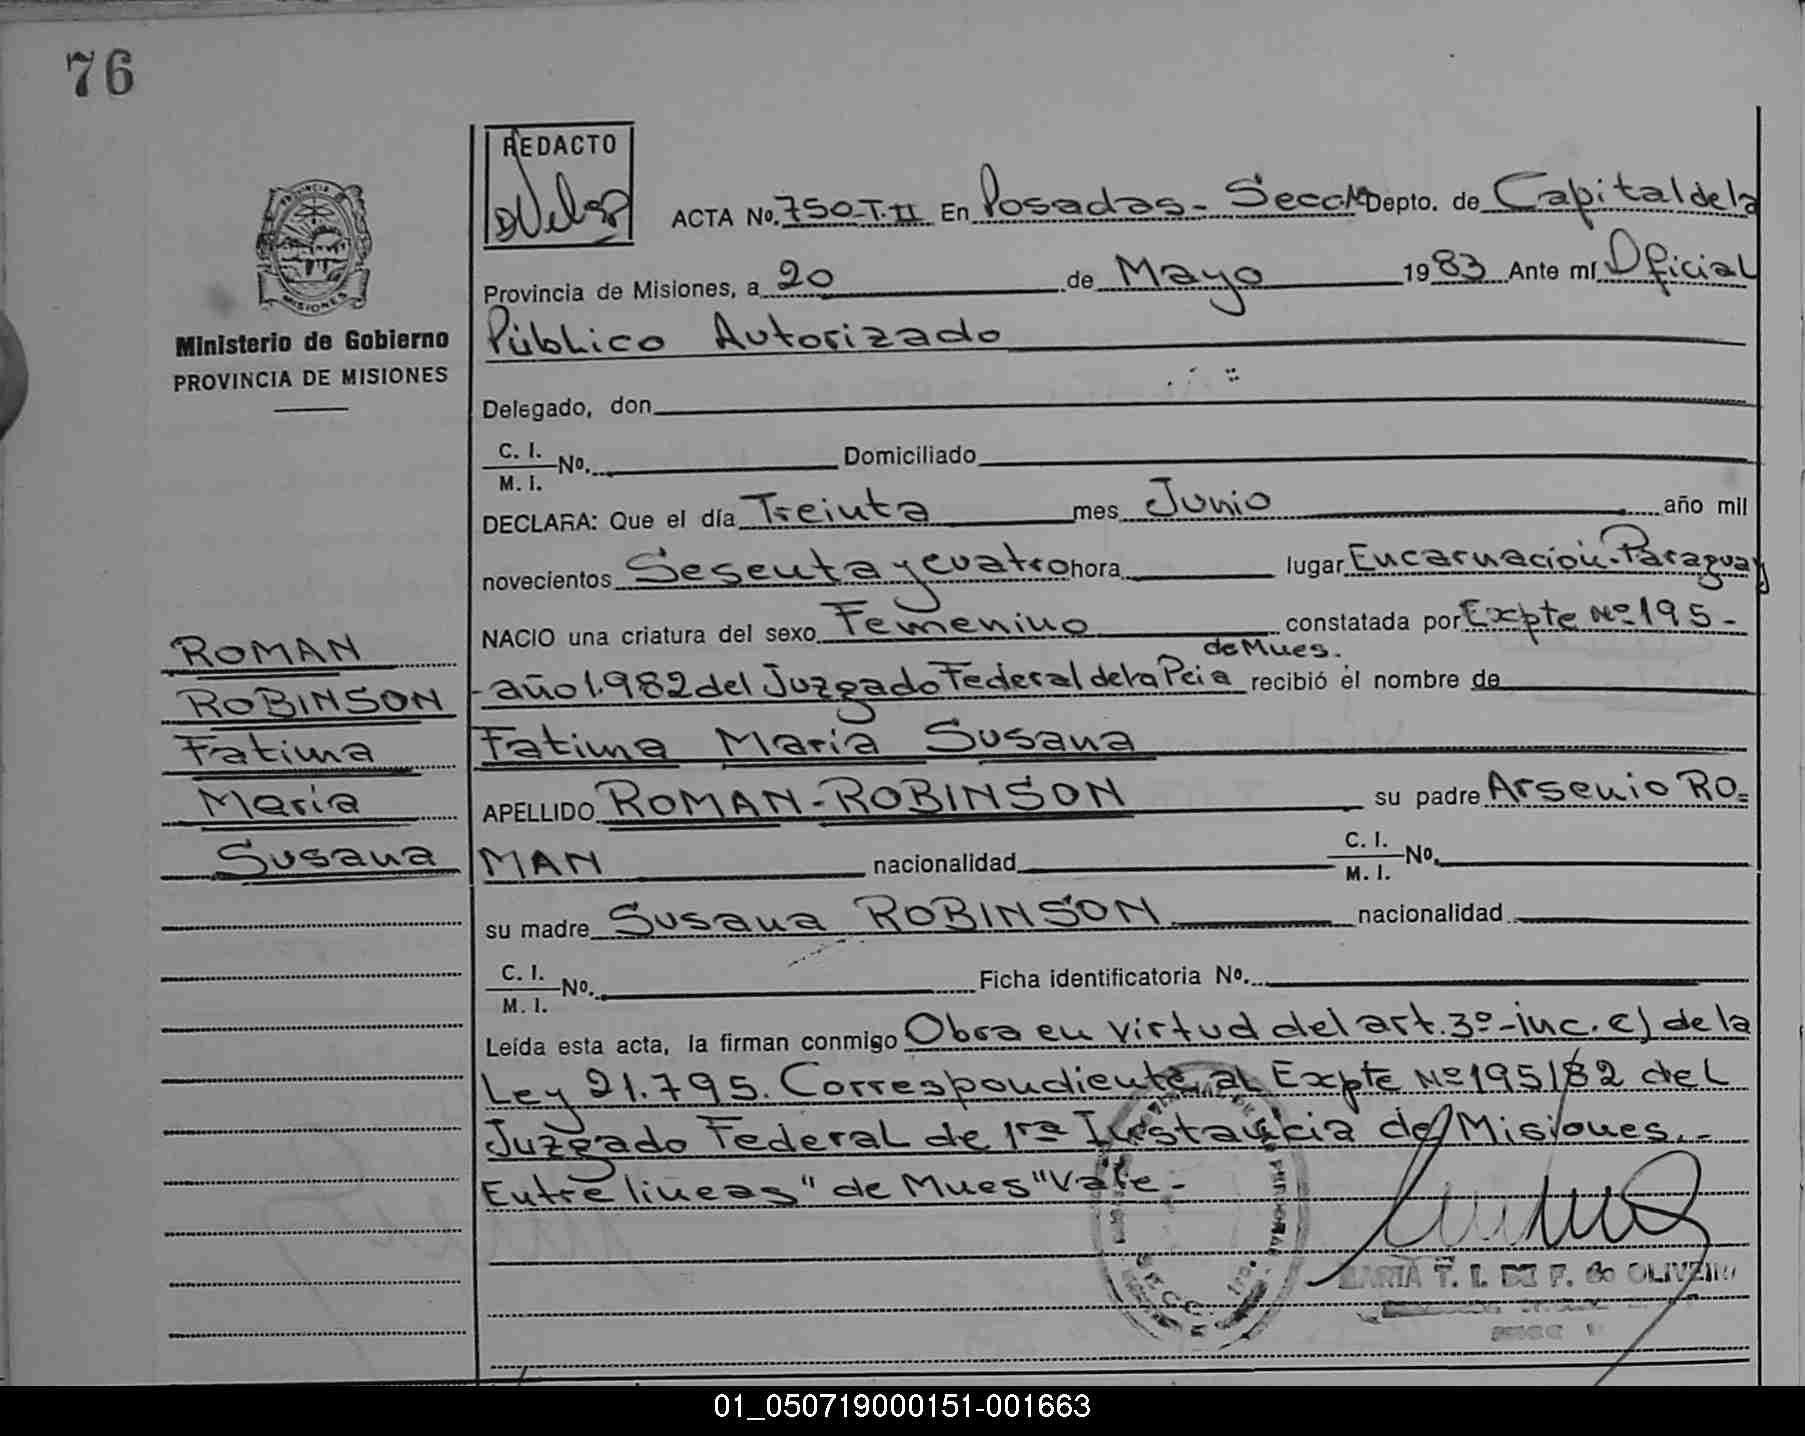 76
REDACTO
ACTA Nº. 750-T.II En Posadas- Secc. Depto. de Capital de la
Provincia de Misiones, a 20 de Mayo 1983 Ante mí Oficial
Público Autorizado
PROVINCIA
MISIONES
Ministerio de Gobierno
PROVINCIA DE MISIONES
Delegado, don
C. I.
M. I. Nº. Domiciliado
DECLARA: Que el día Treinta mes Junio año mil
novecientos Sesenta y cuatro hora lugar Encarnación-Paraguay
NACIO una criatura del sexo Femenino constatada por Expte Nº 195-
de Mnes.
-año 1.982 del Juzgado Federal de la Pcia recibió el nombre de
Fatima Maria Susana
APELLIDO ROMAN-ROBINSON su padre Arsenio RO=
MAN nacionalidad C. I.
M. I. Nº.
su madre Susana ROBINSON nacionalidad
C. I.
M. I. Nº. Ficha identificatoria Nº.
Leída esta acta, la firman conmigo Obra en virtud del art. 3º-inc. c) de la
Ley 21.795. Correspondiente al Expte Nº 195/82 del
Juzgado Federal de 1ra Instancia de Misiones.-
Entre lineas "de Mnes" Vale-
ROMAN
ROBINSON
Fatima
Maria
Susana
MARIA T. I. DE F. de OLIVEIRA
SECC.
01_050719000151-001663